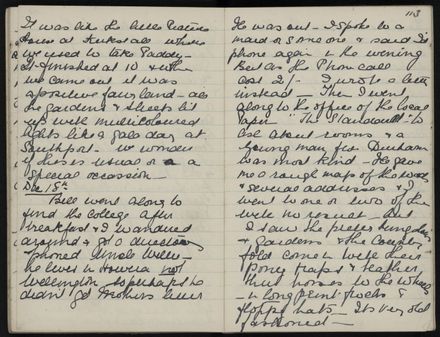 It was like the little Picture
House at Links where
we used to take Paddy -
It finished at 10 & when
we came out it was
a positive fairyland - all
the gardens & streets lit
up with multicoloured
lights like a gala day at
Southport - We wonder
if this is usual or a
special occasion -
Dec 15th
Bill went along to
find the College after
breakfast & I wandered
around & got directions
phoned Uncle Willie -
he lives in Howera not
Wellington so perhaps he
didn't get Mothers letter
113
He was out - I spoke to a
maid or someone & said I'd
phone again in the evening
But as the Phone call
cost 2/- I wrote a letter
instead - Then I went
along to the office of the local
Paper "The Standard" to
ask about rooms & a
young man from Durham
was most kind - He gave
me a rough map of the town
& several addresses & I
went to one or two of them
with no result - but
I saw the pretty bungalows
& gardens & the Country
folk come in with their
pony traps & tether
their horses to the
in long print frocks &
floppy hats - Its very old
fashioned -